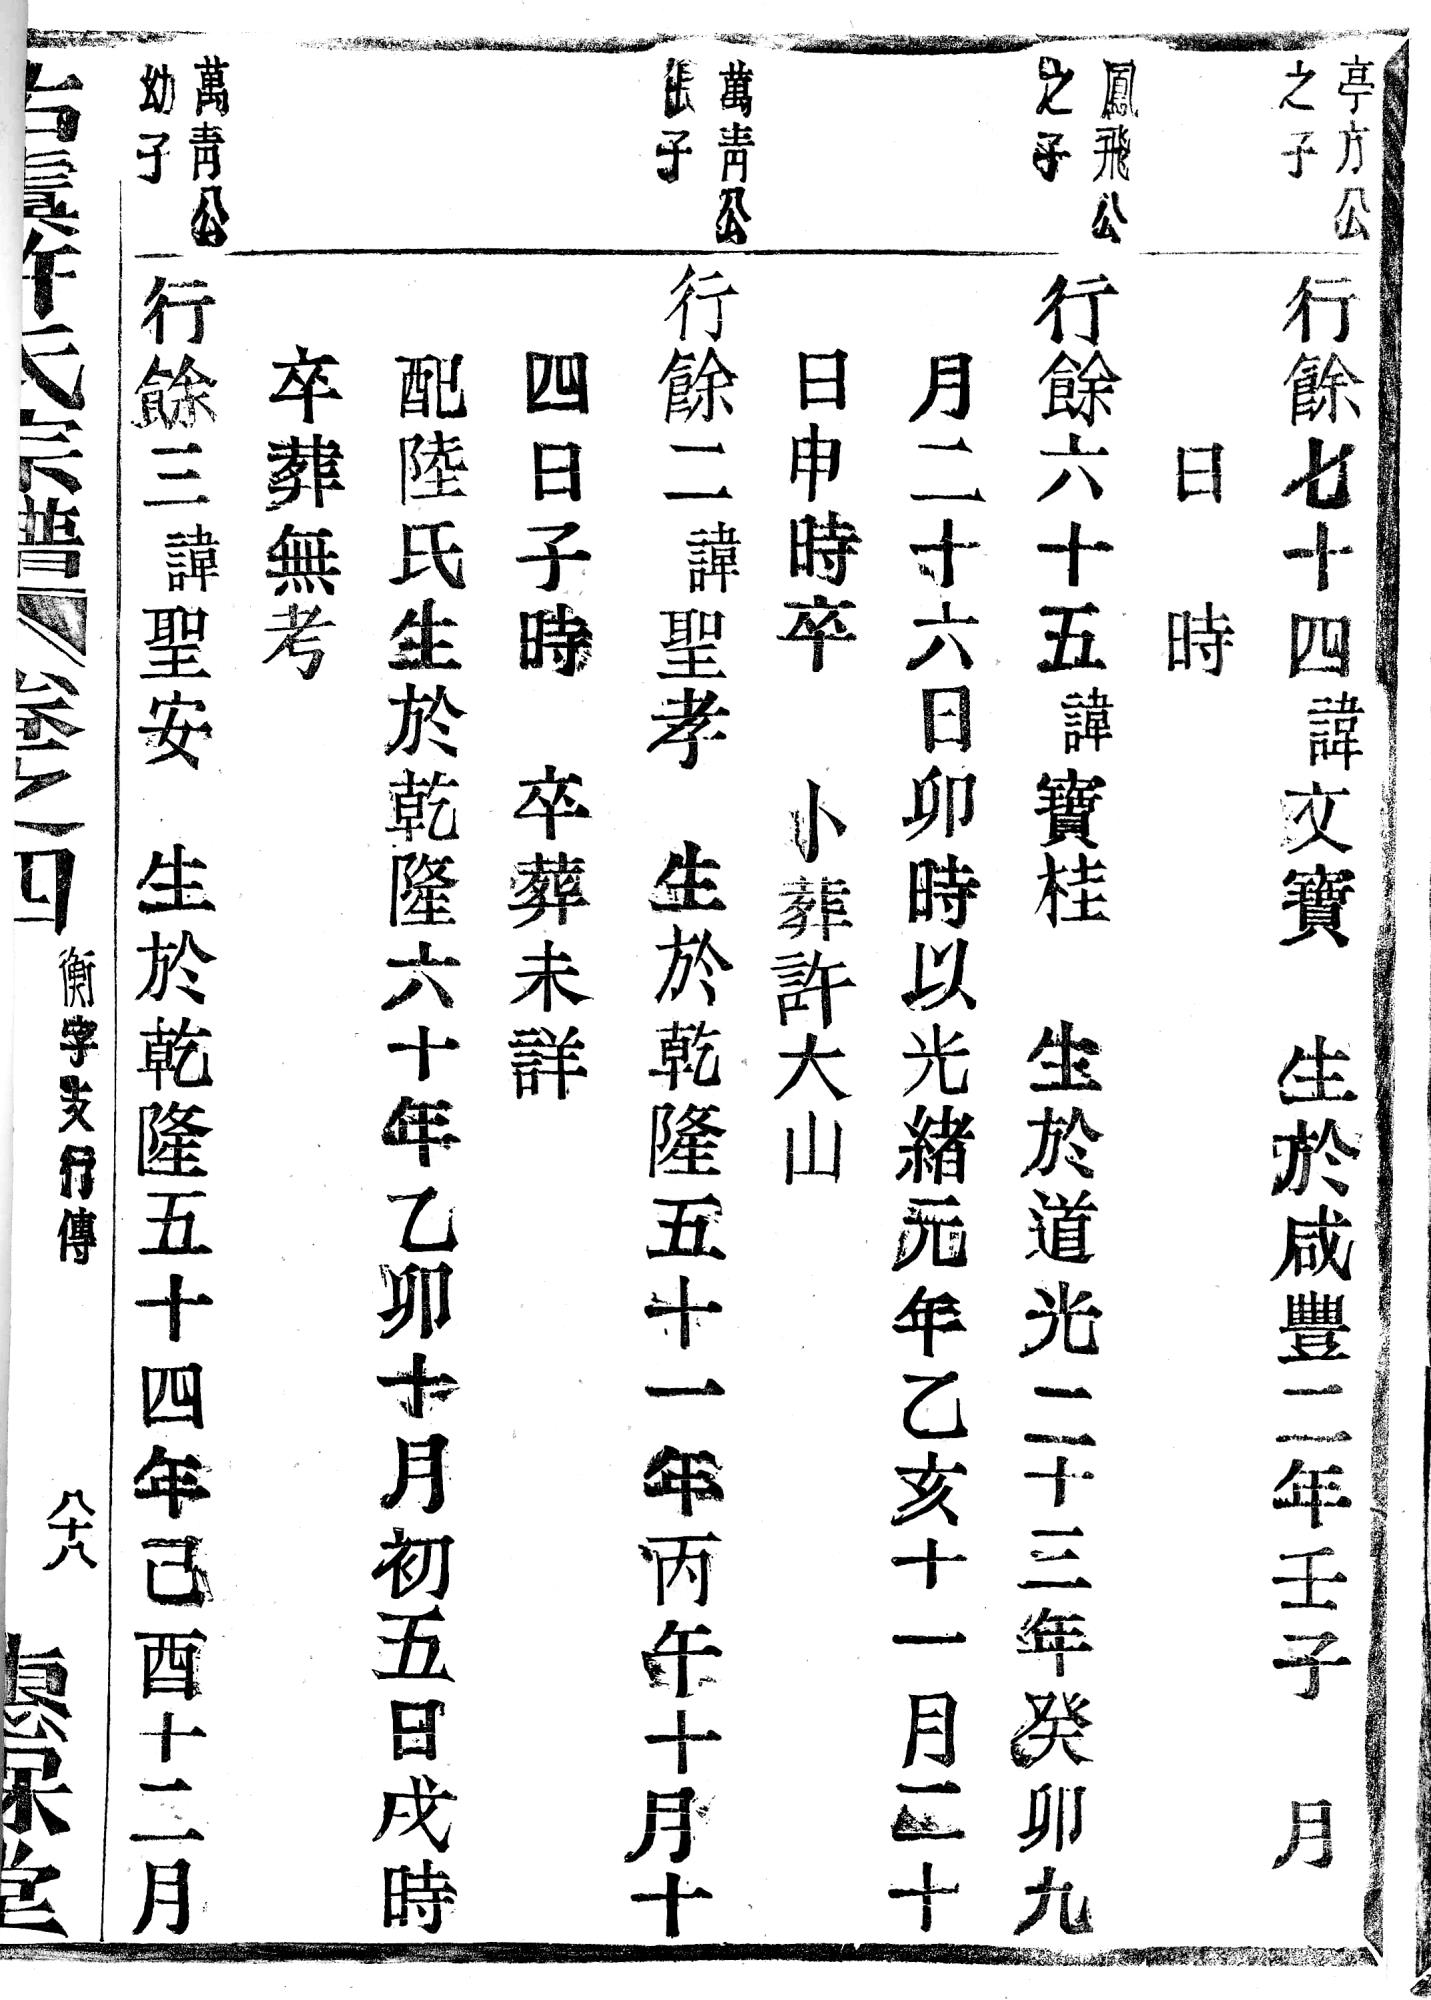 亭方公
之子
行餘七十四諱文寶　生於咸豐二年壬子　月
日　時
鳳飛公
之子
行餘六十五諱寶桂　生於道光二十三年癸卯九
月二十六日卯時以光緒元年乙亥十一月二十
日申時卒　卜葬許大山
萬青公
長子
行餘二諱聖孝　生於乾隆五十一年丙午十月十
四日子時　卒葬未詳
配陸氏生於乾隆六十年乙卯十月初五日戌時
卒葬無考
萬青公
幼子
行餘三諱聖安　生於乾隆五十四年己酉十二月
古虞許氏宗譜　卷之四　衡字支行傳　八十八　惇保堂